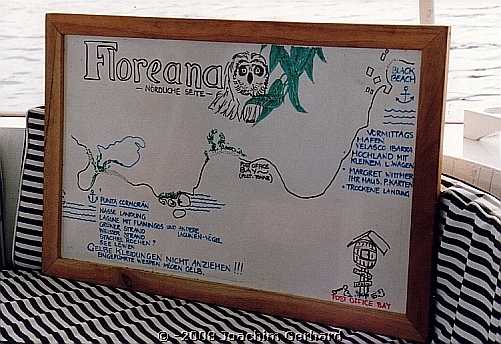 Floreana
- NÖRDLICHE SEITE -
BLACK
BEACH
VORMITTAGS
HAFEN
VELASCO IBARRA
HOCHLAND MIT
KLEINEM L.WAGEN
MARGRET WITTMER
IHR HAUS, P.KARTEN
TROCKENE LANDUNG
POST OFFICE
BAY
PUNTA CORMORÁN
NASSE LANDUNG
LAGUNE MIT FLAMINGOS UND ANDERE
LAGUNEN-VÖGEL
GRÜNER STRAND
WEISSER STRAND
STACHEL ROCHEN?
SEE LÖWEN
GELBE KLEIDUNGEN NICHT ANZIEHEN!!!
EINGEFÜHRTE WESPEN MÖGEN GELB.
POST OFFICE BAY
© -2008 Joachim Gerhard